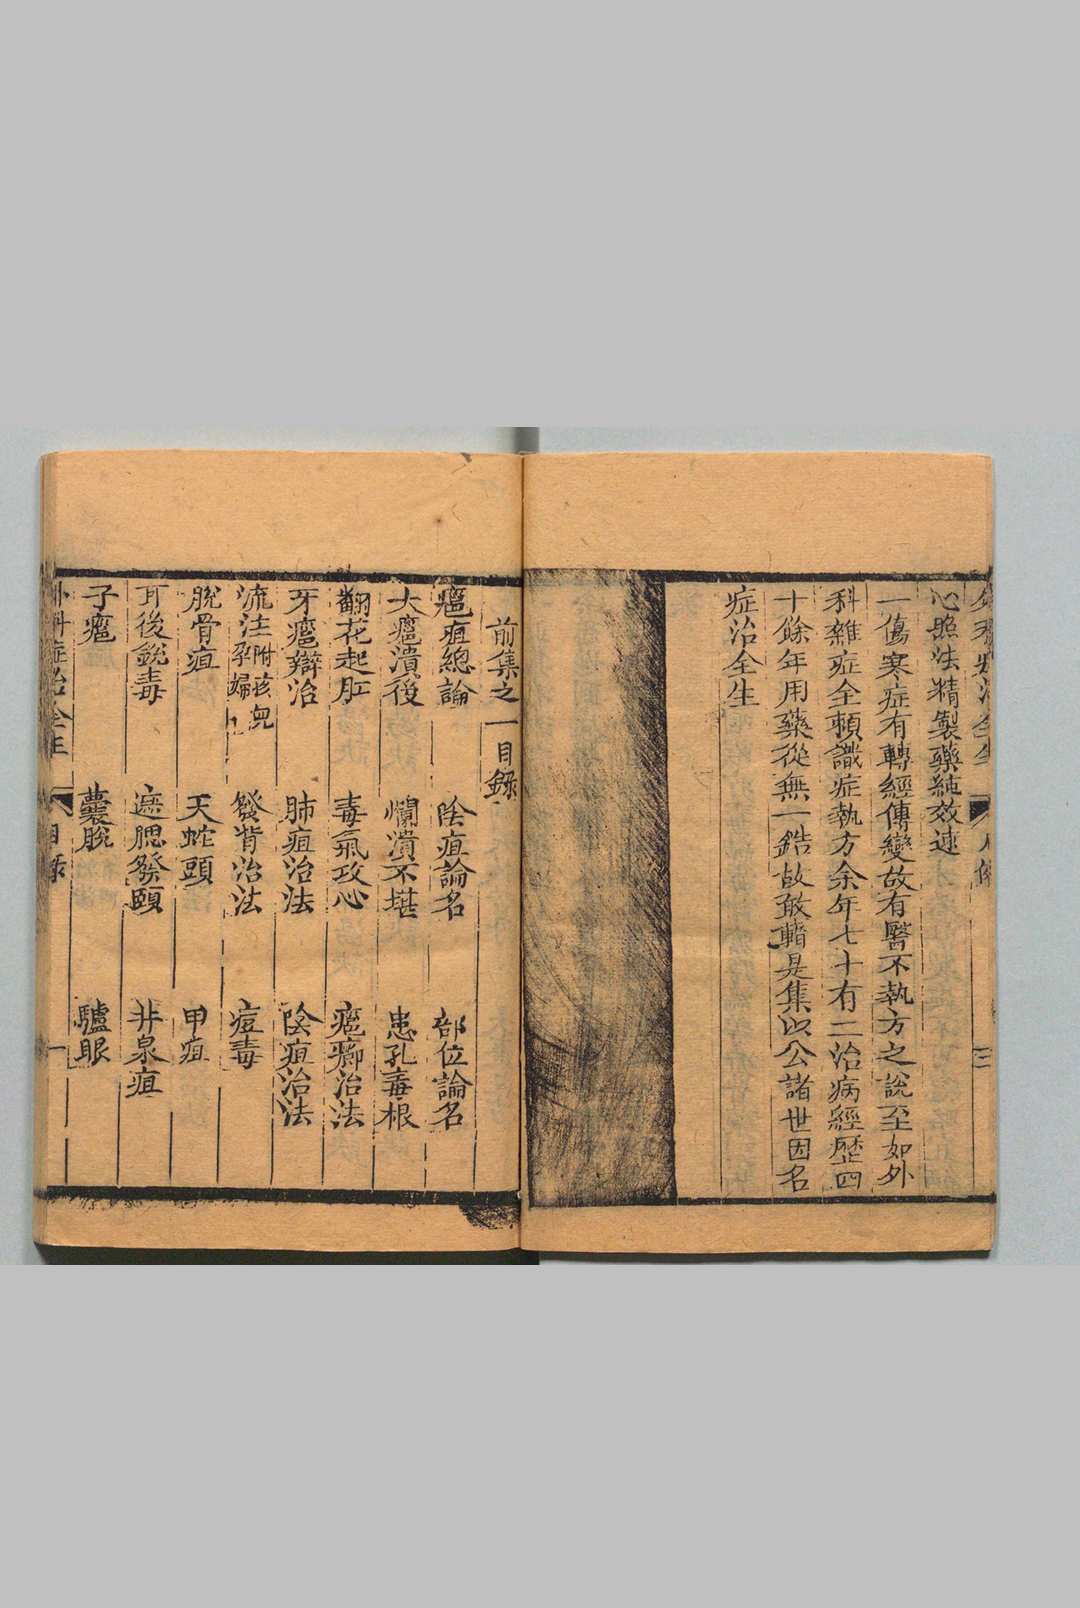 心照法精製藥純效速
一傷寒症有轉經傳變故有醫不執方之說至如外
科雜症全賴識症執方余年七十有二治病經歷四
十餘年用藥從無一錯故敢輯是集以公諸世因名
症治全生
三
前集之一目錄
癰疽總論 陰疽論名 部位論名
大癰潰後 爛潰不堪 患孔毒根
翻花起肛 毒氣攻心 癰癤治法
牙癰辯治 肺疽治法 陰疽治法
流注附孩兒孕婦 發背治法 痘毒
脫骨疽 天蛇頭 甲疽
耳後銳毒 遮腮發頤 井泉疽
子癰 囊脫 驢眼
外科症治全生 目錄 一